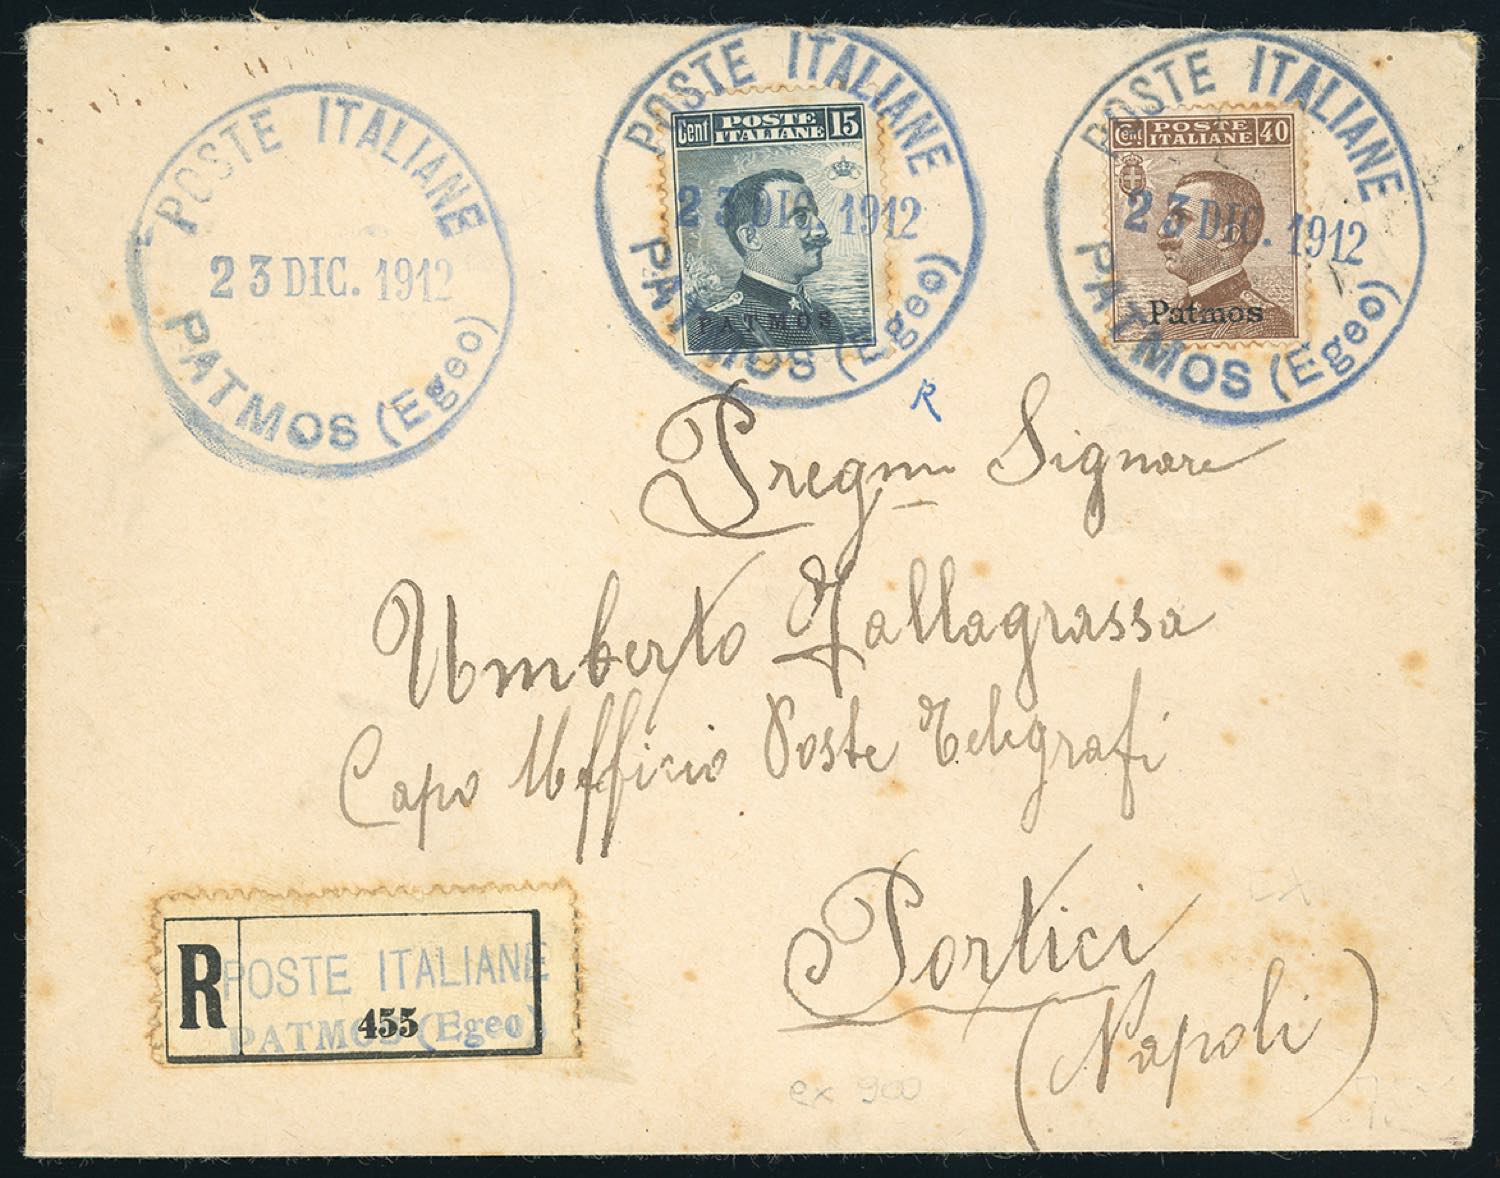 POSTE ITALIANE
23 DIC. 1912
PATMOS (Egeo)
POSTE ITALIANE
23 DIC. 1912
PATMOS (Egeo)
Cent POSTE ITALIANE 15
PATMOS
POSTE ITALIANE
23 DIC. 1912
PATMOS (Egeo)
Cent POSTE ITALIANE 40
Patmos
R
Pregmo Signore
Umberto Tallagrassa
Capo Ufficio Poste Telegrafi
Portici
(Napoli)
R POSTE ITALIANE
455
PATMOS (Egeo)
ex 900